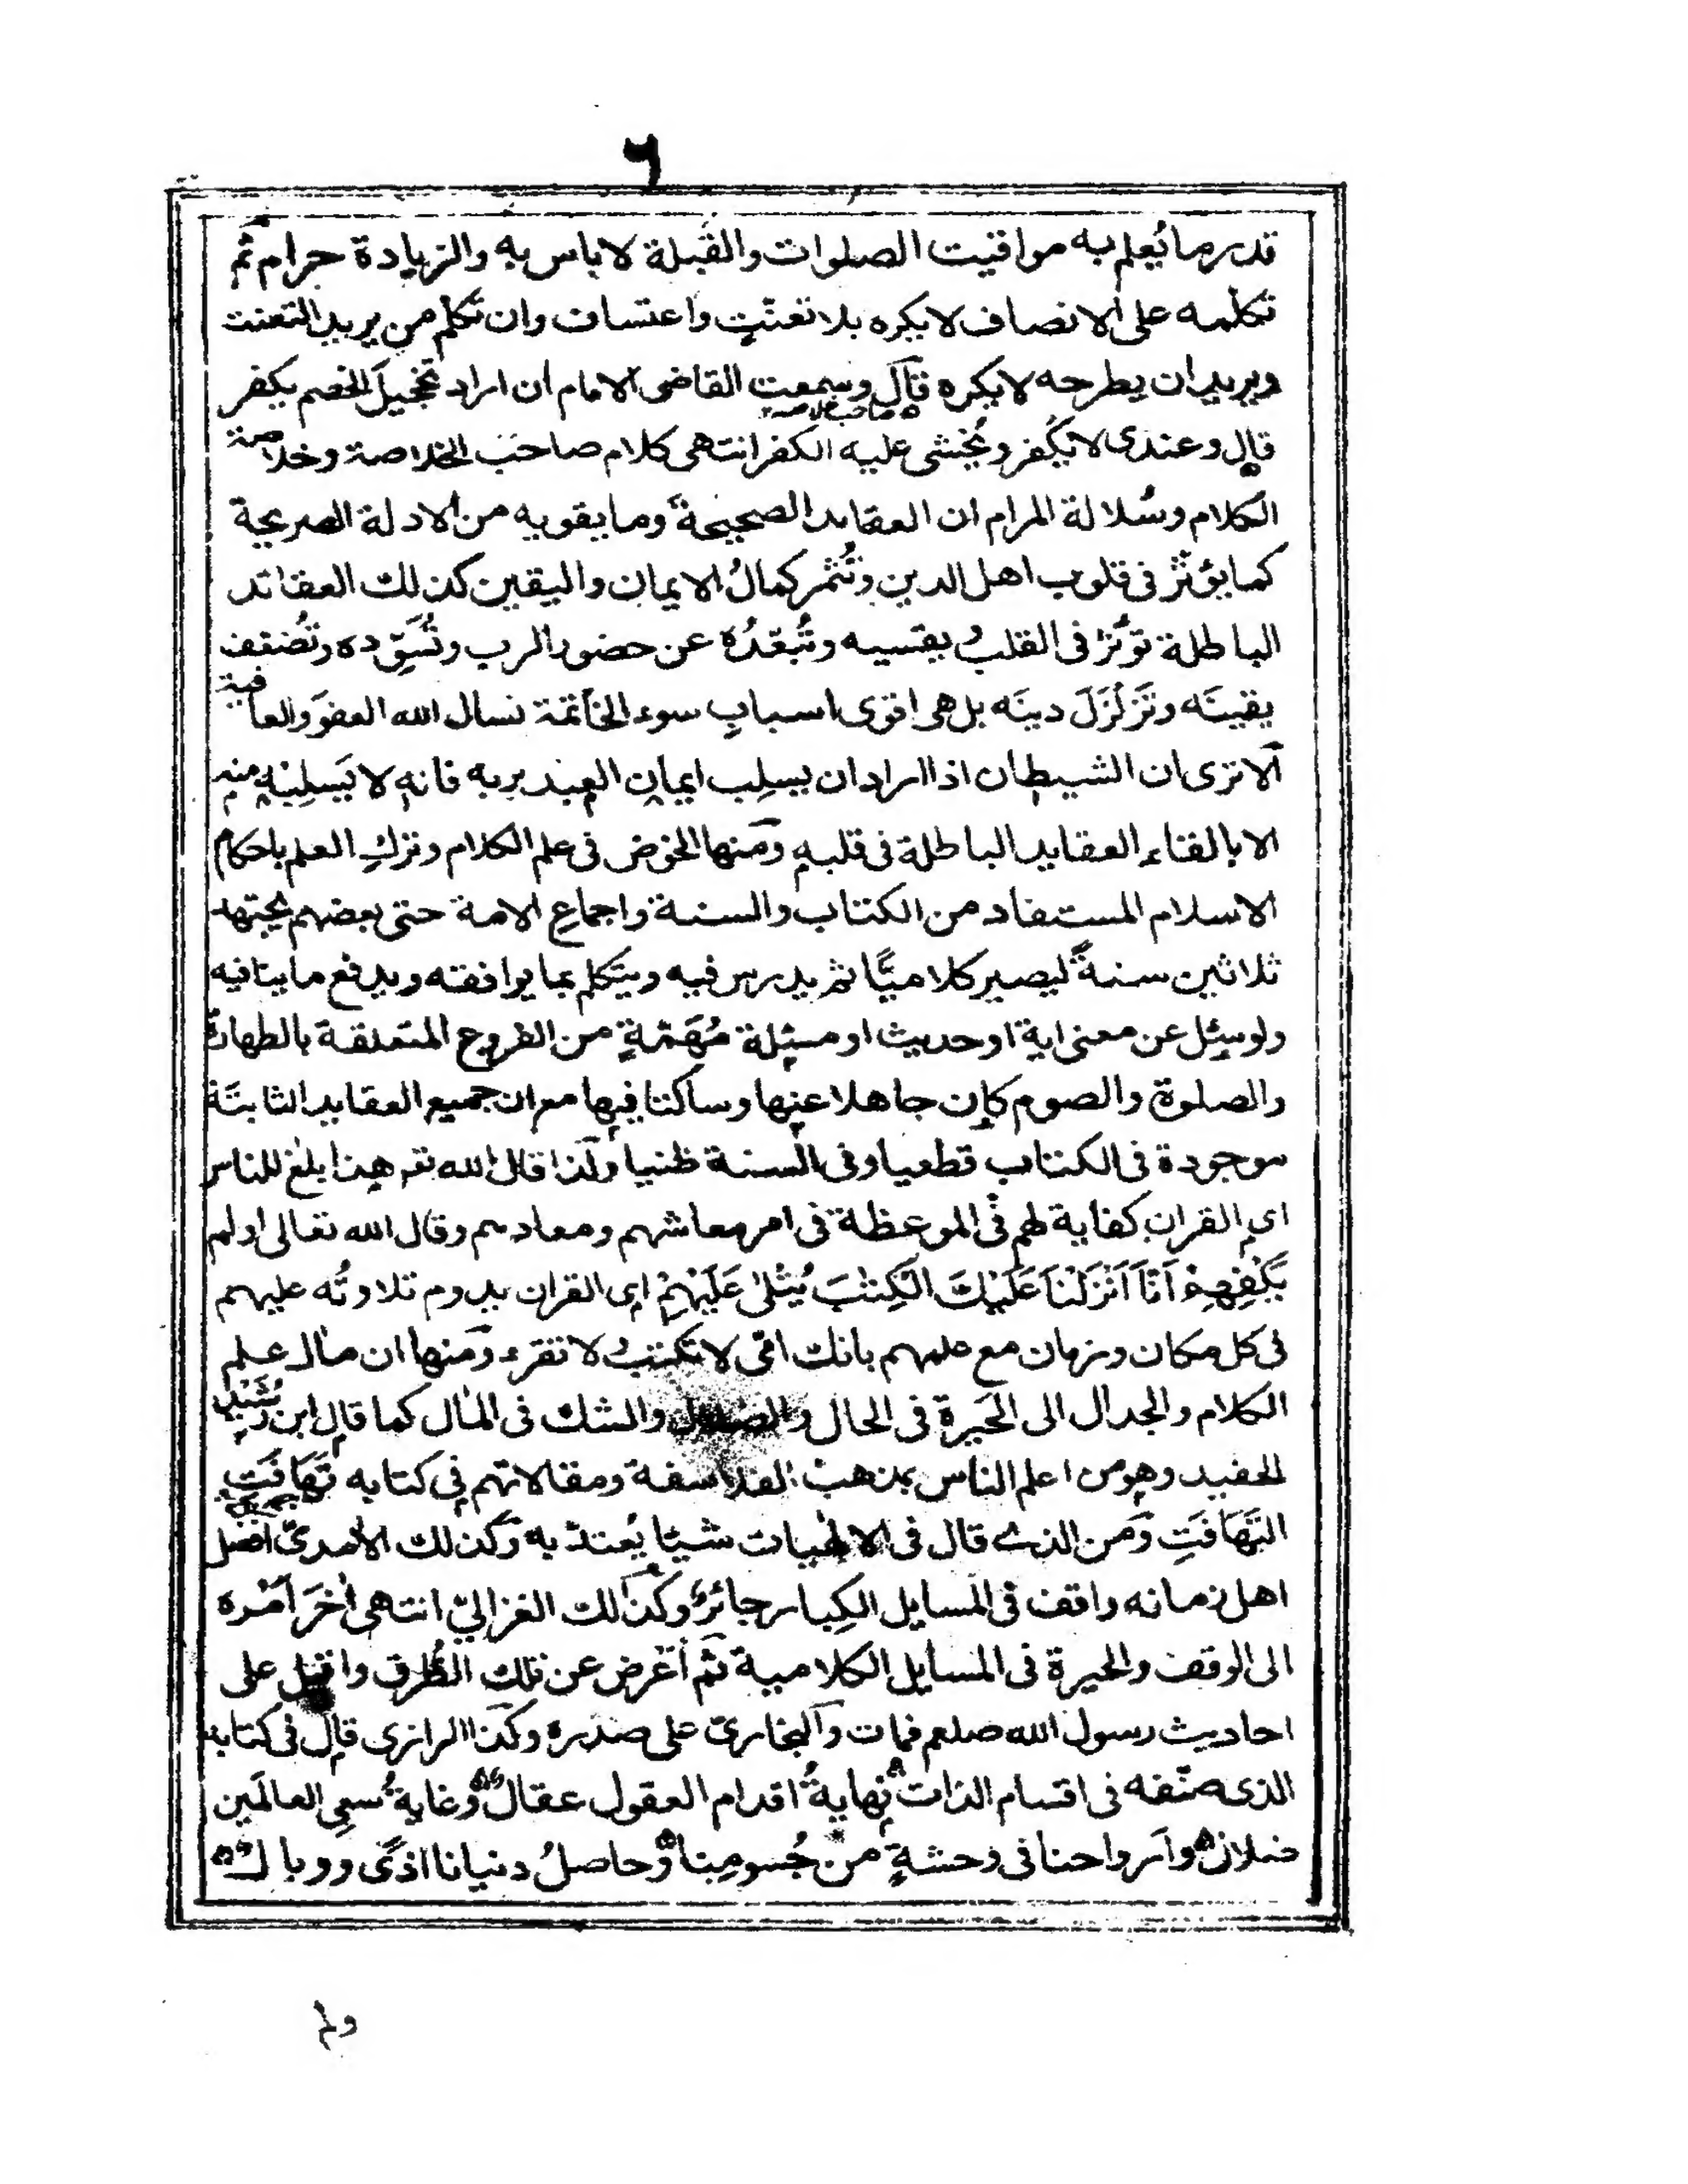 ٦
قدر ما يُعلم به مواقيت الصلوات والقبلة لا باس به والزيادة حرام ثم
تكلمه على الانصاف لا يكره بلا تعنّتٍ واعتساف وان تكلم من يريد التعنت
ويريد ان يطرحه لا يكره قال وسمعت القاضى الامام ان اراد تخجيل الخصم يكفر
قال وعندى لا يكفر ويُخشى عليه الكفر انتهى كلام صاحب الخلاصة وخلاصة
الكلام وسُلالة المرام ان العقايد الصحيحة وما يقويه من الادلة الصريحة
كما يؤثّر فى قلوب اهل الدين وتُثمر كمالُ الايمان واليقين كذلك العقائد
الباطلة تؤثّر فى القلب ويقسيه وتُبعّدُه عن حضور الرب وتُسَوِّده وتُضعف
يقينَه وتَزَلْزَلَ دينَه بل هى اقوى اسبابِ سوء الخاتمة نسال الله العفوَ والعافية
ألا ترى ان الشيطان اذا اراد ان يسلِب ايمان العبد بربه فانه لا يَسلِبُه منه
الا بالقاء العقايد الباطلة فى قلبه ومنها الخوض فى علم الكلام وترك العلم باحكام
الاسلام المستفاد من الكتاب والسنة واجماع الامة حتى بعضهم يجتهد
ثلاثين سنةً ليصير كلاميًّا ثم يدرس فيه ويتكلم بما يوافقه ويدفع ما ينافيه
ولو سئل عن معنى اية او حديث او مسئلة مُهَمّةٍ من الفروع المتعلقة بالطهارة
والصلوة والصوم كان جاهلا عنها وساكتا فيها مع ان جميع العقايد الثابتَة
موجودة فى الكتاب قطعيا وفى السنة ظنيا ولذا قال الله تعـ هذا بلغ للناس
اى القران كفاية لهم فى الموعظة فى امر معاشهم ومعادهم وقال الله تعالى اولم
يَكْفِهِمْ اَنَّآ اَنْزَلْنَا عَلَيْكَ الْكِتٰبَ يُتْلٰى عَلَيْهِمْ اى القران يدوم تلاوتُه عليهم
فى كل مكان وزمان مع علمهم بانك امّى لا تكتب ولا تقرء ومنها ان مال علم
الكلام والجدال الى الحَيرة فى الحال والضلال والشك فى المٰال كما قال ابن رُشْدٍ
الحفيد وهو من اعلم الناس بمذهب الفلاسفة ومقالاتهم فى كتابه تَهَافَتِ
التَّهَافَتِ ومن الذى قال فى الالٰهيات شيئا يُعتدّ به وكذلك الاٰمدىّ افضل
اهل زمانه واقف فى المسايل الكِبار حائرٌ وكذلك الغزالىّ انتهى اٰخَرَ اَمْره
الى الوقف والحيرة فى المسايل الكلامية ثم أعْرض عن تلك الطُّرق واقبل على
احاديث رسول الله صلعم فمات والبخارىّ على صدره وكذا الرازى قال فى كتابه
الذى صنّفه فى اقسام الذات نِهايةُ اقدام العقول عقال وغايةُ سعىِ العالَمين
ضلال وارواحنا فى وحشةٍ من جُسومِنا وحاصلُ دنيانا اذًى ووبال
ولم